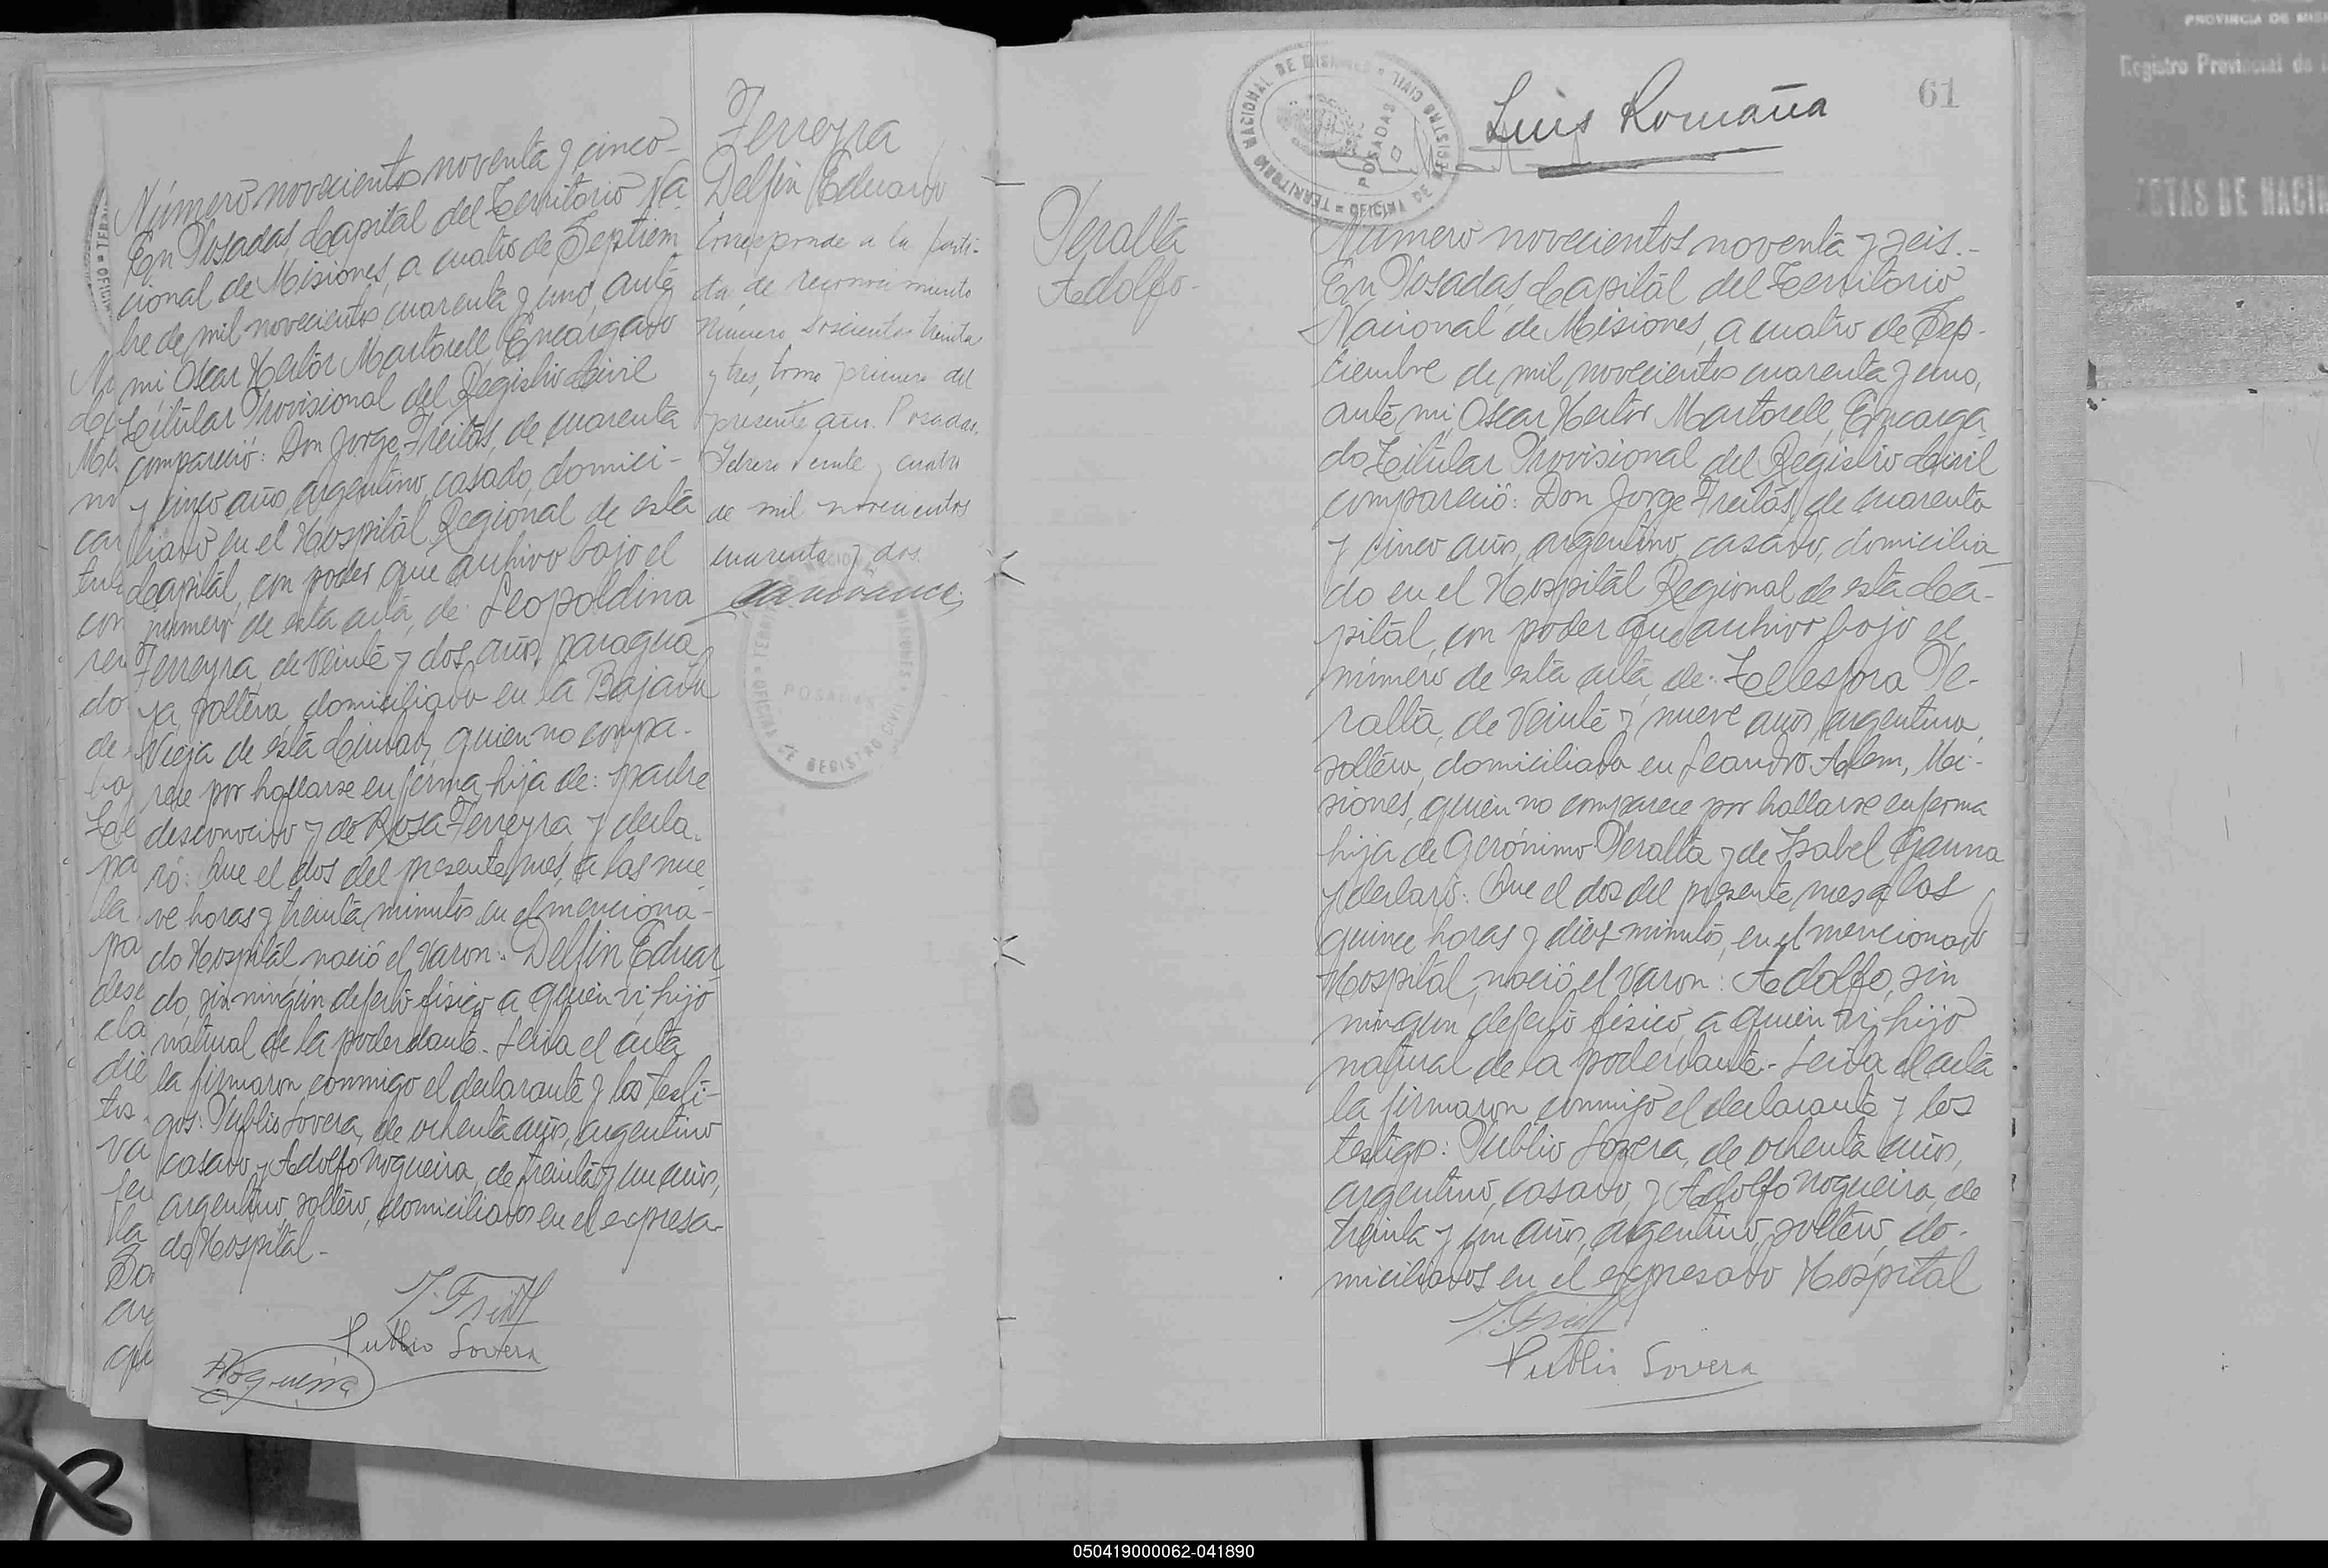 Número novecientos noventa y cinco-
En Posadas, Capital del Territorio Na-
cional de Misiones, a cuatro de Septiem
bre de mil novecientos cuarenta y uno, ante
mi Oscar Hector Martorell, Encargado
Titular Provisional del Registro Civil
compareció: Don Jorge Freitas, de cuarenta
y cinco años, argentino, casado, domici-
liado en el Hospital Regional de esta
Capital, con poder que archivo bajo el
número de esta acta, de: Leopoldina
Ferreyra, de veinte y dos años, paragua
ya, soltera, domiciliada en la Bajada
Vieja de esta Ciudad, quien no compa-
rece por hallarse enferma, hija de: padre
desconocido y de Rosa Ferreyra, y decla-
ró: Que el dos del presente mes, a las nue
ve horas y treinta minutos en el menciona-
do Hospital, nació el varon: Delfin Eduar
do, sin ningún defecto físico, a quien vi, hijo
natural de la poderdante. Leida el acta
la firmaron conmigo el declarante y los testi-
gos: Publio Lovera, de ochenta años, argentino
casado y Adolfo Nogueira, de treinta y un años,
argentino, soltero, domiciliados en el expresa-
do Hospital-
J. Freit
Publio Lovera
ANogueira
Ferreyra
Delfin Eduardo
Corresponde a la parti-
da de reconocimiento
Número Doscientos treinta
y tres, tomo primero del
presente año. Posadas,
Febrero veinte y cuatro
de mil novecientos
cuarenta y dos.
TERRITORIO NACIONAL DE MISIONES = OFICINA DE REGISTRO CIVIL =
POSADAS
TERRITORIO NACIONAL DE MISIONES = OFICINA DE REGISTRO CIVIL
POSADAS
Luis Romaña
61
Peralta
Adolfo-
Número novecientos noventa y seis.-
En Posadas, Capital del Territorio
Nacional de Misiones, a cuatro de Sep-
tiembre de mil novecientos cuarenta y uno,
ante mi, Oscar Hector Martorell, Encarga
do Titular Provisional del Registro Civil
compareció: Don Jorge Freitas, de cuarenta
y cinco años, argentino, casado, domicilia
do en el Hospital Regional de esta Ca-
pital, con poder que archivo bajo el
número de esta acta, de: Telesfora Pe-
ralta, de veinte y nueve años, argentina,
soltera, domiciliada en Leandro Alem, Mi-
siones, quien no comparece por hallarse enferma
hija de Gerónimo Peralta y de Isabel Gauna
y declaró: Que el dos del presente mes a las
quince horas y diez minutos, en el mencionado
Hospital, nació el varon: Adolfo, sin
ningun defecto físico, a quien vi, hijo
natural de la poderdante.- Leida el acta
la firmaron conmigo el declarante y los
testigos: Publio Lovera, de ochenta años,
argentino, casado, y Adolfo Nogueira, de
treinta y un años, argentino, soltero, do-
miciliados en el expresado Hospital
J. Freit
Publio Lovera
PROVINCIA DE MISI
Registro Provincial de l
ACTAS DE NACIM
050419000062-041890